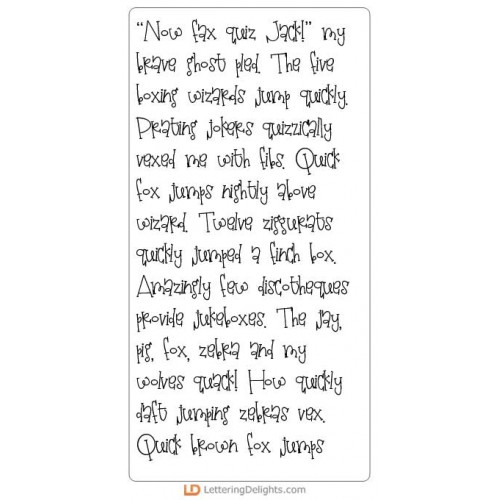 "Now fax quiz Jack!" my
brave ghost pled. The five
boxing wizards jump quickly.
Prating jokers quizzically
vexed me with fibs. Quick
fox jumps nightly above
wizard. Twelve ziggurats
quickly jumped a finch box.
Amazingly few discotheques
provide jukeboxes. The jay,
pig, fox, zebra and my
wolves quack! How quickly
daft jumping zebras vex.
Quick brown fox jumps
LD LetteringDelights.com